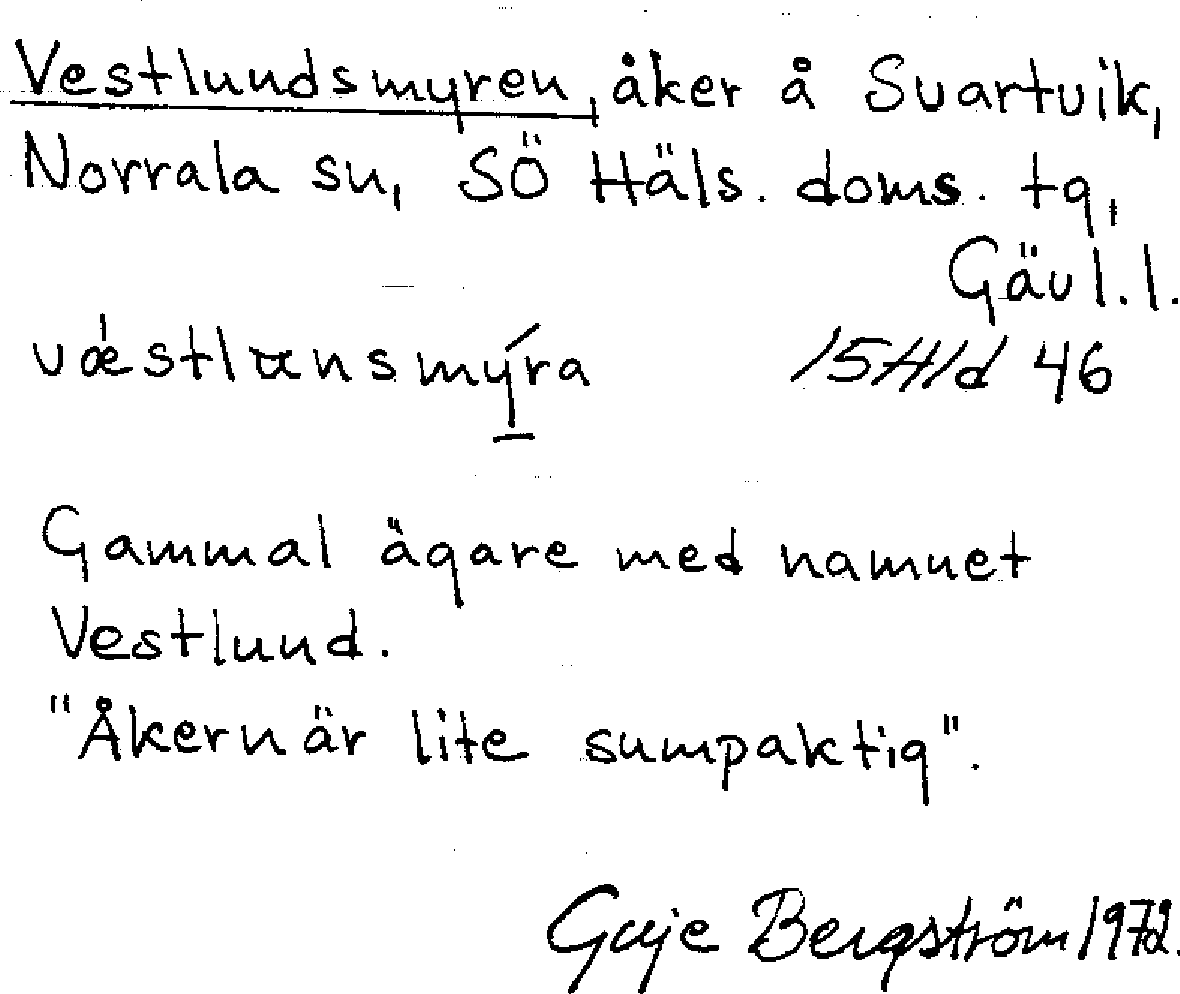 Vestlundsmyren, åker å Svartvik,
Norrala sn, SÖ Häls. doms. tg,
Gävl.l.
vǽstlɷnsmýra 15H1d 46
Gammal ägare med namnet
Vestlund.
"Åkern är lite sumpaktig".
Guje Bergström 1972.